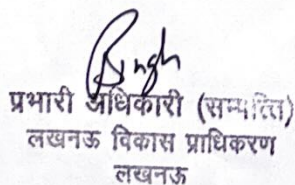 Singh
प्रभारी अधिकारी (सम्पत्ति)
लखनऊ विकास प्राधिकरण
लखनऊ